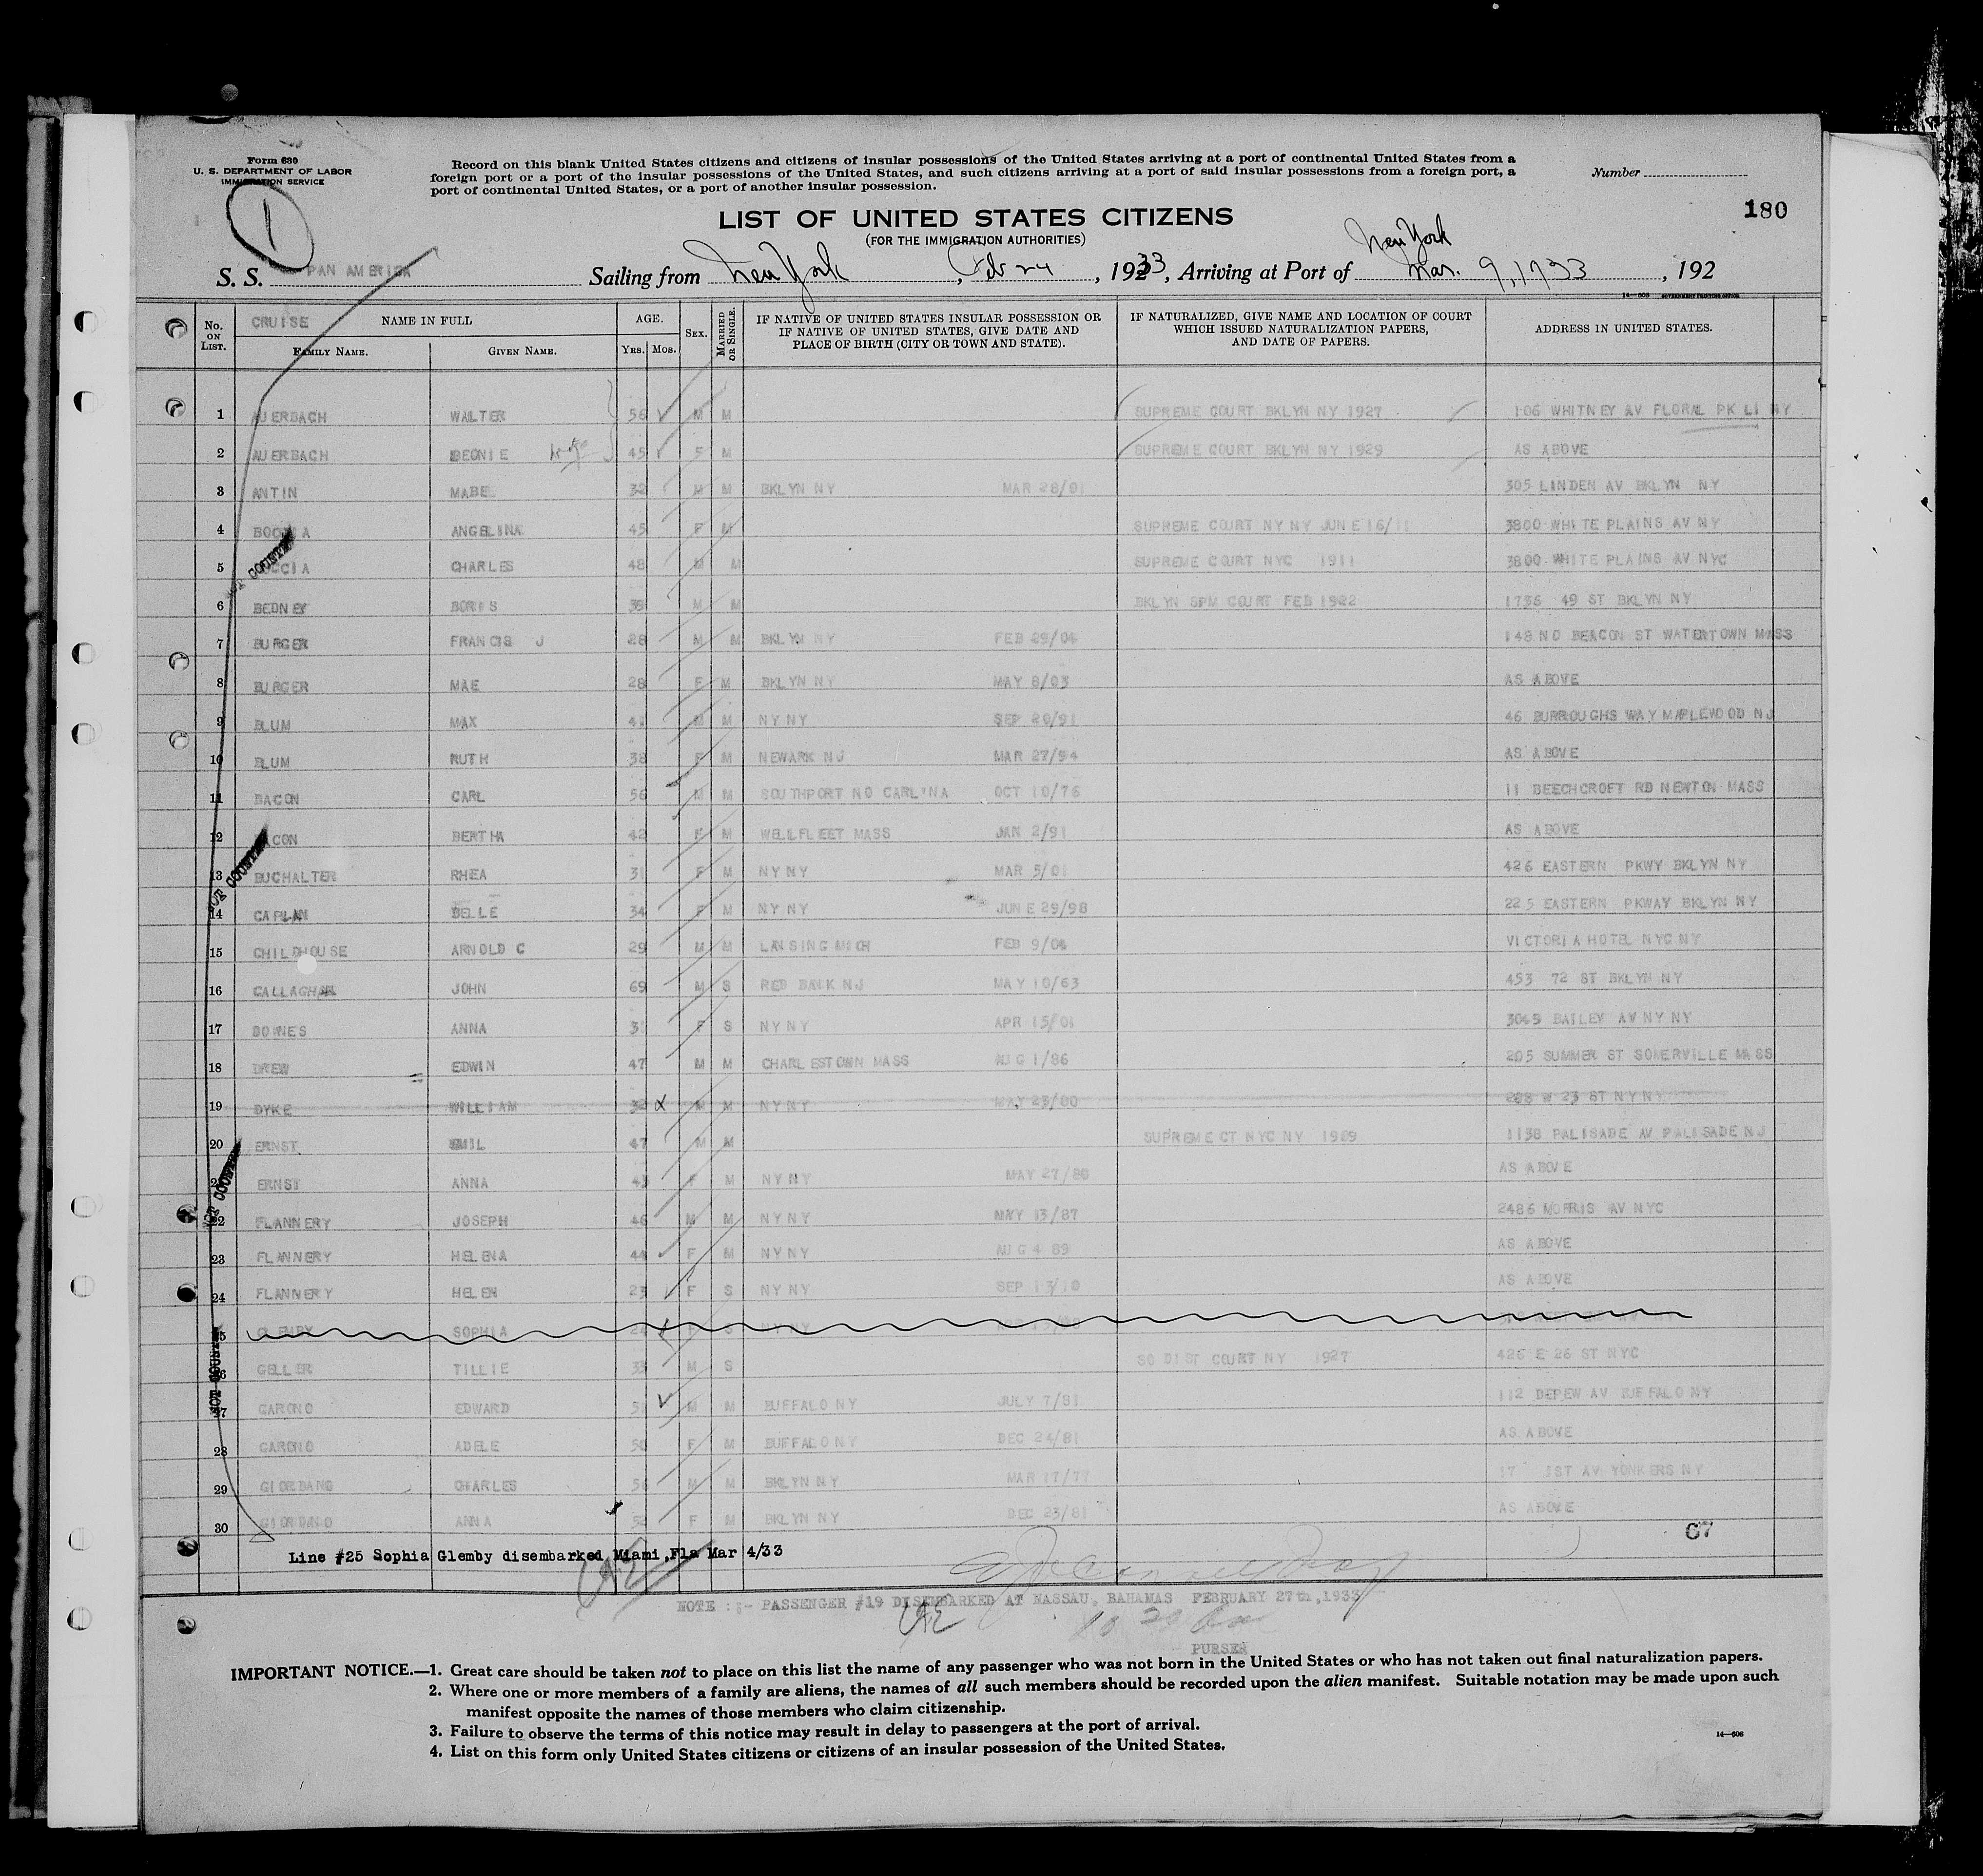 Form 630
U. S. DEPARTMENT OF LABOR
IMMIGRATION SERVICE
Record on this blank United States citizens and citizens of insular possessions of the United States arriving at a port of continental United States from a
foreign port or a port of the insular possessions of the United States, and such citizens arriving at a port of said insular possessions from a foreign port, a
port of continental United States, or a port of another insular possession.
Number
180
1
LIST OF UNITED STATES CITIZENS
(FOR THE IMMIGRATION AUTHORITIES)
S. S. PAN AMERICA Sailing from New York, Feb 24, 1933, Arriving at Port of New York Mar. 9, 1933, 192
14—608 GOVERNMENT PRINTING OFFICE
No. ON LIST. CRUISE NAME IN FULL FAMILY NAME. GIVEN NAME. AGE. Yrs. Mos. SEX. MARRIED OR SINGLE. IF NATIVE OF UNITED STATES INSULAR POSSESSION OR IF NATIVE OF UNITED STATES, GIVE DATE AND PLACE OF BIRTH (CITY OR TOWN AND STATE). IF NATURALIZED, GIVE NAME AND LOCATION OF COURT WHICH ISSUED NATURALIZATION PAPERS, AND DATE OF PAPERS. ADDRESS IN UNITED STATES.
1 AUERBACH WALTER 56 M M SUPREME COURT BKLYN NY 1927 106 WHITNEY AV FLORAL PK LI NY
2 AUERBACH wife 45 F M SUPREME COURT BKLYN NY 1929 AS ABOVE
3 ANTIN 32 M M BKLYN NY MAR 28/01 305 LINDEN AV BKLYN NY
4 ANGELINA 45 F M SUPREME COURT NY NY JUNE 16/11 3800 WHITE PLAINS AV NY
5 CHARLES 48 M M SUPREME COURT NYC 1911 3800 WHITE PLAINS AV NYC
6 BEDNEY BORIS M M BKLYN SPM COURT FEB 1922 1736 49 ST BKLYN NY
7 BURGER FRANCIS J 28 M M BKLYN NY FEB 29/04 148 NO BEACON ST WATERTOWN MASS
8 BURGER MAE 28 F M BKLYN NY MAY 8/03 AS ABOVE
9 BLUM MAX 41 M M NY NY SEP 20/91 46 BURROUGHS WAY MAPLEWOOD NJ
10 BLUM RUTH 38 F M NEWARK NJ MAR 27/94 AS ABOVE
11 BACON CARL 56 M M SOUTHPORT NO CARLINA OCT 10/76 11 BEECHCROFT RD NEWTON MASS
12 BACON BERTHA 42 F M WELLFLEET MASS JAN 2/91 AS ABOVE
13 BUCHALTER RHEA 31 F M NY NY MAR 5/01 426 EASTERN PKWY BKLYN NY
14 CAPLAN BELLE 34 F M NY NY JUNE 29/98 225 EASTERN PKWAY BKLYN NY
15 CHILDHOUSE ARNOLD C 29 M M LANSING MICH FEB 9/04 VICTORIA HOTEL NYC NY
16 CALLAGHAN JOHN 69 M S RED BANK NJ MAY 10/63 453 72 ST BKLYN NY
17 ANNA F S NY NY APR 15/01 3049 BAILEY AV NY NY
18 DREW EDWIN 47 M M CHARLESTOWN MASS AUG 1/86 205 SUMMER ST SOMERVILLE MASS
19 DYKE WILLIAM 32 X M M NY NY MAY 23/00 W 23 ST NY NY
20 ERNST EMIL 47 M M SUPREME CT NYC NY 1909 1138 PALISADE AV PALISADE NJ
21 ERNST ANNA 43 F M NY NY MAY 27/ AS ABOVE
22 FLANNERY JOSEPH 46 M M NY NY MAY 13/87 2486 MORRIS AV NYC
23 FLANNERY HELENA 44 F M NY NY AUG 4 89 AS ABOVE
24 FLANNERY HELEN 23 F S NY NY SEP 13/10 AS ABOVE
25 SOPHIA F S NY NY
26 GELLER TILLIE 33 M S SO DIST COURT NY 1927 426 E 26 ST NYC
27 GARONO EDWARD 51 M M BUFFALO NY JULY 7/81 112 DEPEW AV BUFFALO NY
28 GARONO ADELE 50 F M BUFFALO NY DEC 24/81 AS ABOVE
29 GIORDANO CHARLES 56 M M BKLYN NY MAR 17/77 AV YONKERS NY
30 GIORDANO ANNA 52 F M BKLYN NY DEC 23/81 AS ABOVE
NOT COUNTED
NOT COUNTED
NOT COUNTED
NOT COUNTED
67
Line #25 Sophia Glemby disembarked Miami, Fla Mar 4/33
NOTE :- PASSENGER #19 DISEMBARKED AT NASSAU, BAHAMAS FEBRUARY 27th, 1933
PURSER
IMPORTANT NOTICE.—1. Great care should be taken not to place on this list the name of any passenger who was not born in the United States or who has not taken out final naturalization papers.
2. Where one or more members of a family are aliens, the names of all such members should be recorded upon the alien manifest. Suitable notation may be made upon such
manifest opposite the names of those members who claim citizenship.
3. Failure to observe the terms of this notice may result in delay to passengers at the port of arrival.
4. List on this form only United States citizens or citizens of an insular possession of the United States.
14—608